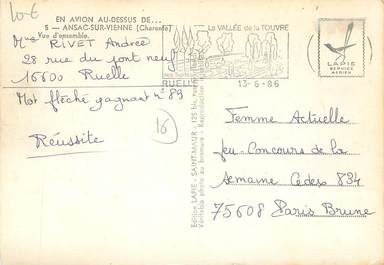 10-€
EN AVION AU-DESSUS DE...
5 — ANSAC-SUR-VIENNE (Charente)
Vue d'ensemble.
Mme RIVET Andrée
28 rue du pont neuf
16600 Ruelle
Mot fléché gagnant n° 89
Réussite
16
La VALLÉE de la TOUVRE
RUELLE
13-6-86
LAPIE
SERVICE
AERIEN
Edition LAPIE - SAINT-MAUR - 125 bis,
Véritable photo au bromure - Reproduction
Femme Actuelle
Jeu-Concours de la
Semaine Cedex 834
75608 Paris Brune